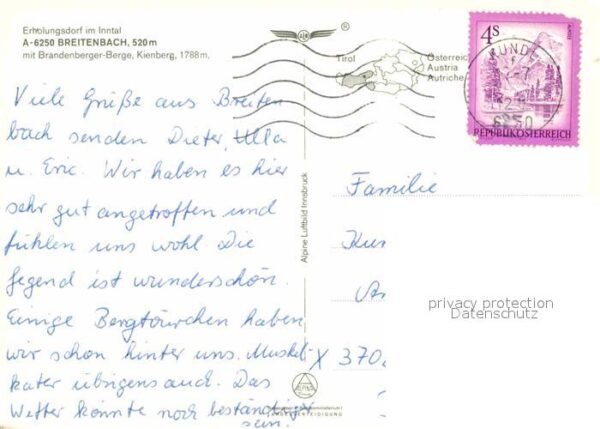 Erholungsdorf im Inntal
A-6250 BREITENBACH, 520m
mit Brandenberger-Berge, Kienberg, 1788m.
Viele Grüße aus Breiten
bach senden Dieter, Ulla
u. Eric. Wir haben es hier
sehr gut angetroffen und
fühlen uns wohl. Die
Gegend ist wunderschön.
Einige Bergtourchen haben
wir schon hinter uns. Muskel-
kater übrigens auch. Das
Wetter könnte noch beständiger
sein!
Alpine Luftbild Innsbruck
®
Tirol
Österreich
Austria
Autriche
4S
6250
REPUBLIK ÖSTERREICH
Familie
X 370
privacy protection
Datenschutz